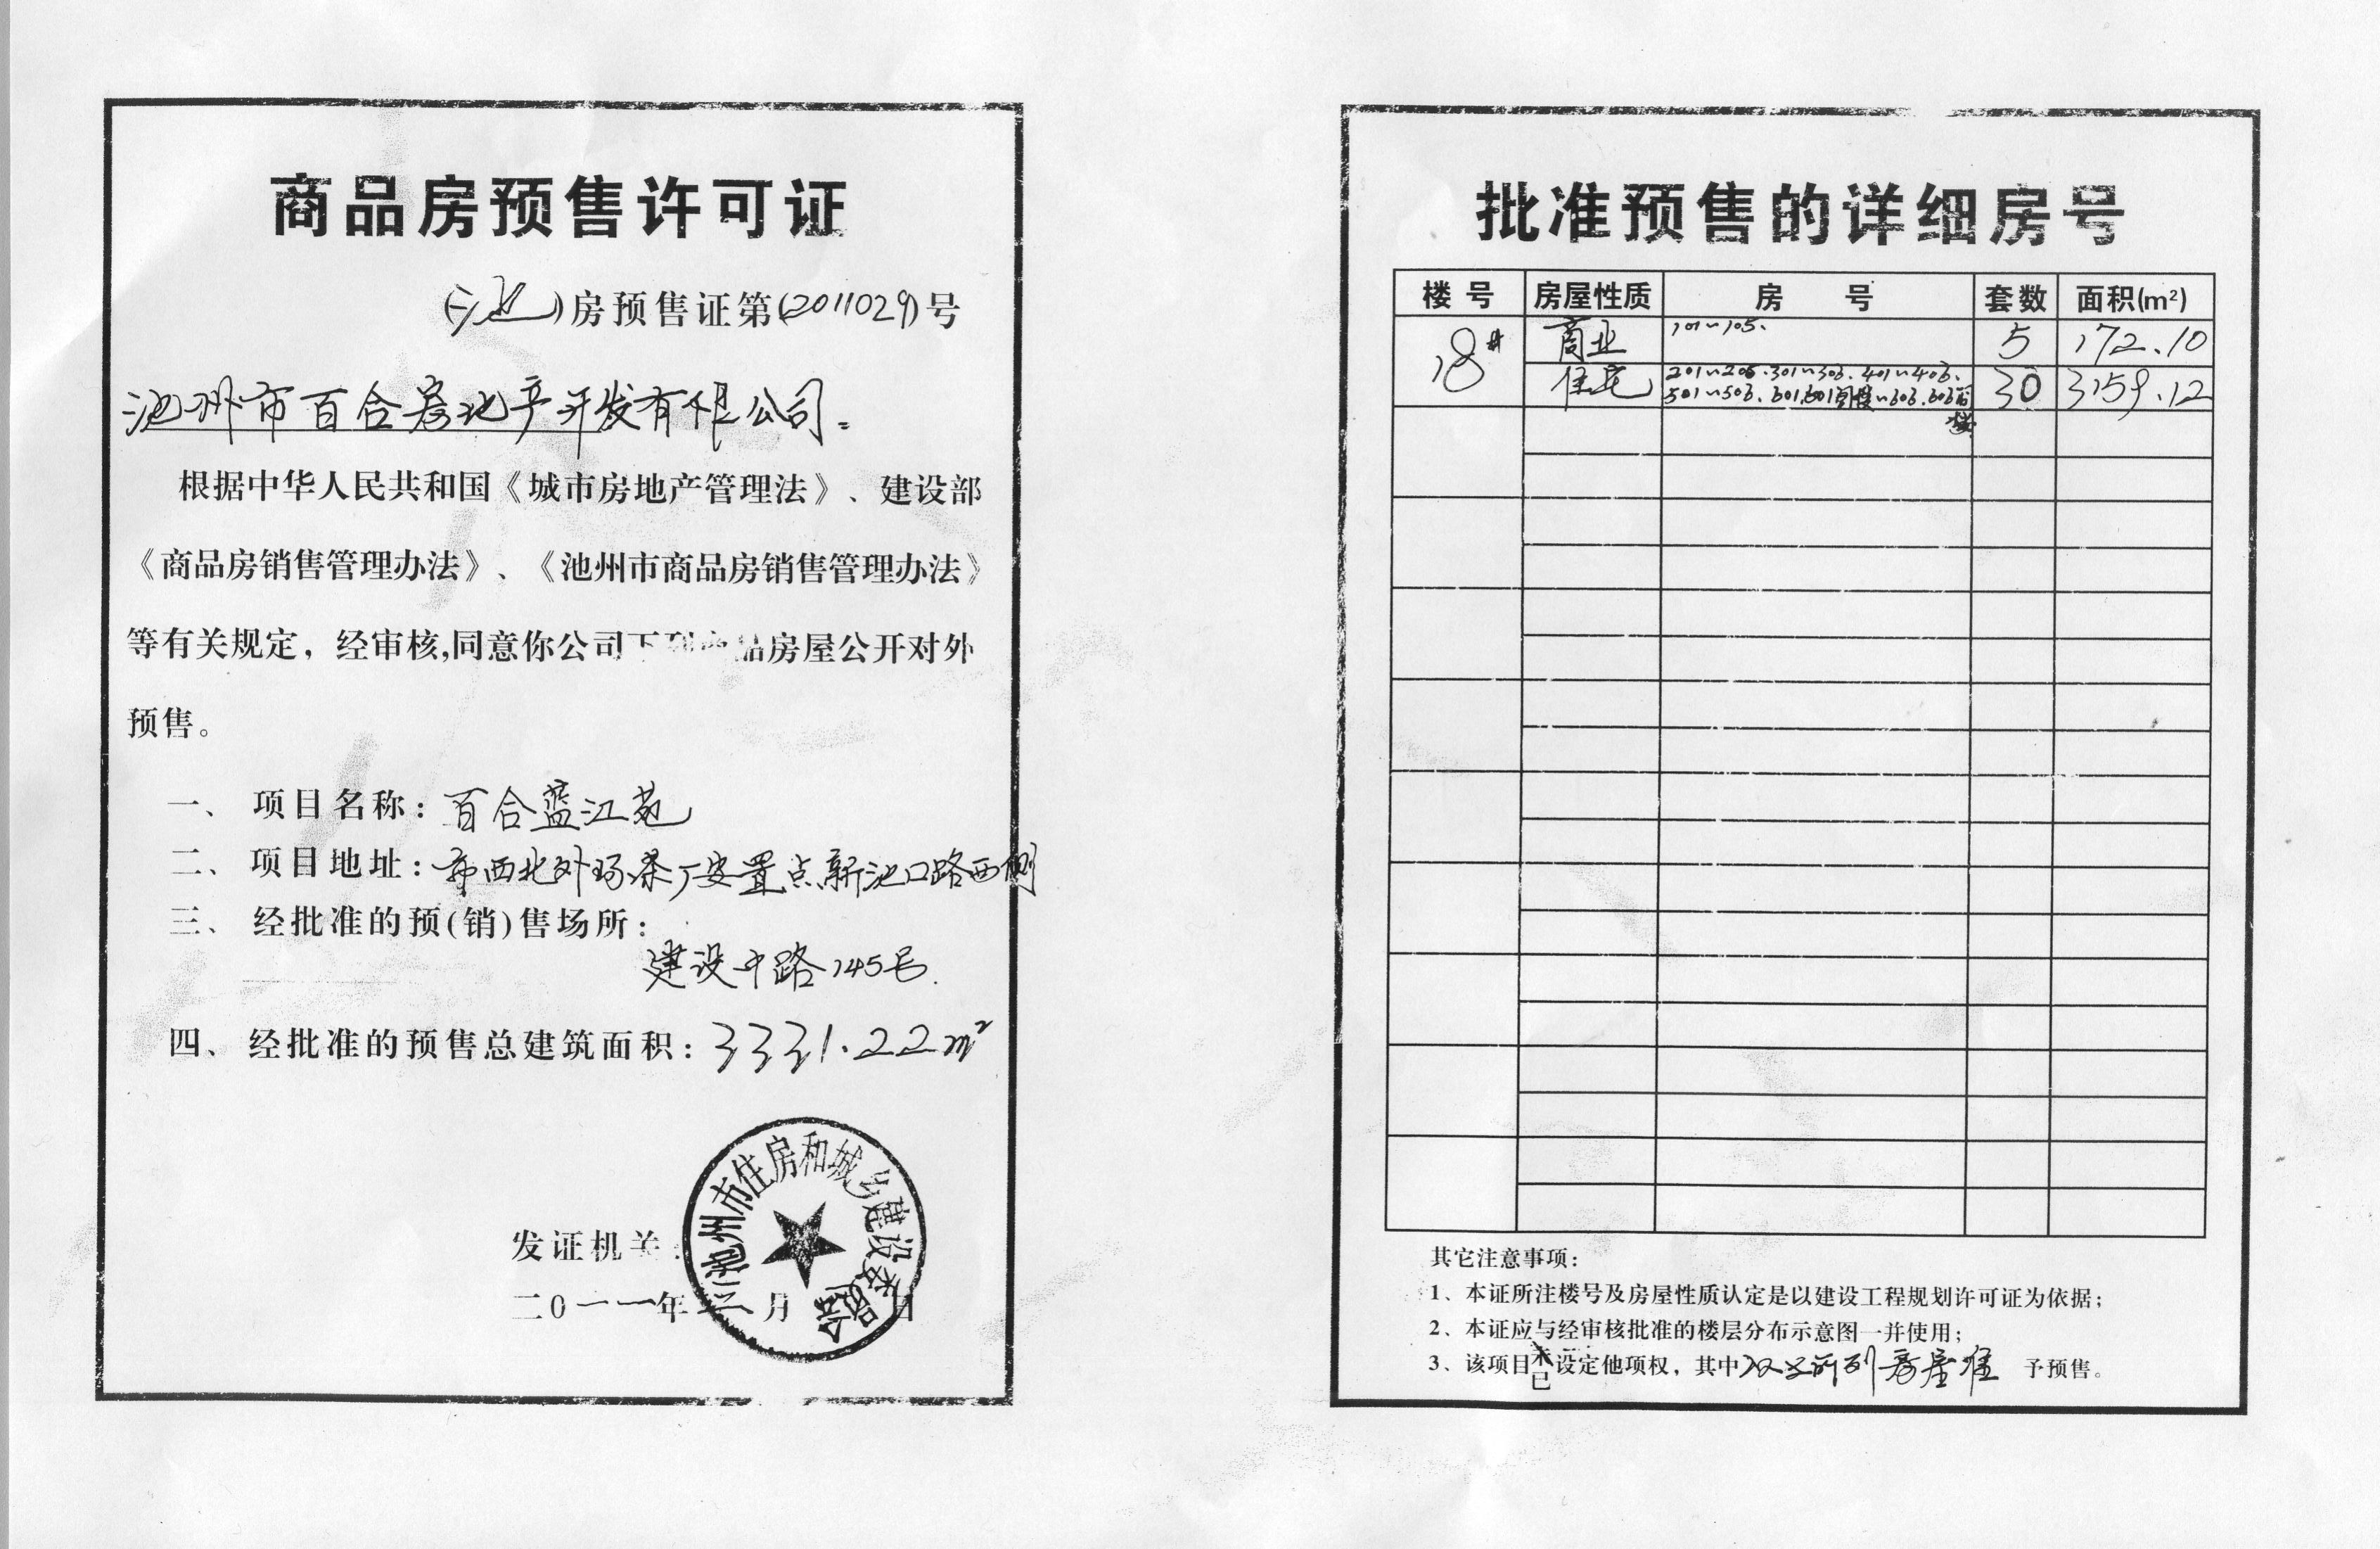 商品房预售许可证
(池)房预售证第(2011029)号
池州市百合房地产开发有限公司:
根据中华人民共和国《城市房地产管理法》、建设部
《商品房销售管理办法》、《池州市商品房销售管理办法》
等有关规定，经审核,同意你公司下列商品房屋公开对外
预售。
一、项目名称：百合蓝江苑
二、项目地址：市西北外环茶厂安置点新池口路西侧
三、经批准的预(销)售场所：
建设中路145号.
四、经批准的预售总建筑面积：3331.22m²
池州市住房和城乡建设委员会
发证机关：
二0一一年 月 日
批准预售的详细房号
楼号 房屋性质 房号 套数 面积(m²)
18# 商业 101~105. 5 172.10
住宅 201~206.301~306.401~406. 30 3159.12
501~506.601.601阁楼~606.606阁
楼
其它注意事项：
1、本证所注楼号及房屋性质认定是以建设工程规划许可证为依据；
2、本证应与经审核批准的楼层分布示意图一并使用；
3、该项目未/已设定他项权，其中 前列房屋准 予预售。